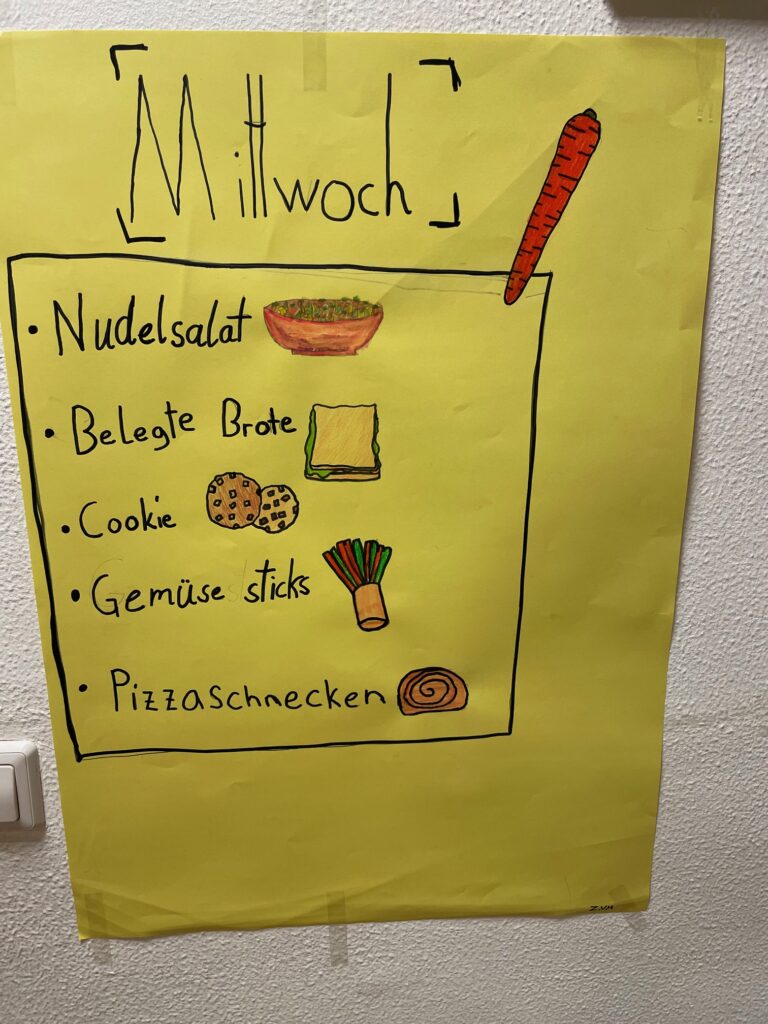 Mittwoch
• Nudelsalat
• Belegte Brote
• Cookie
• Gemüse sticks
• Pizzaschnecken